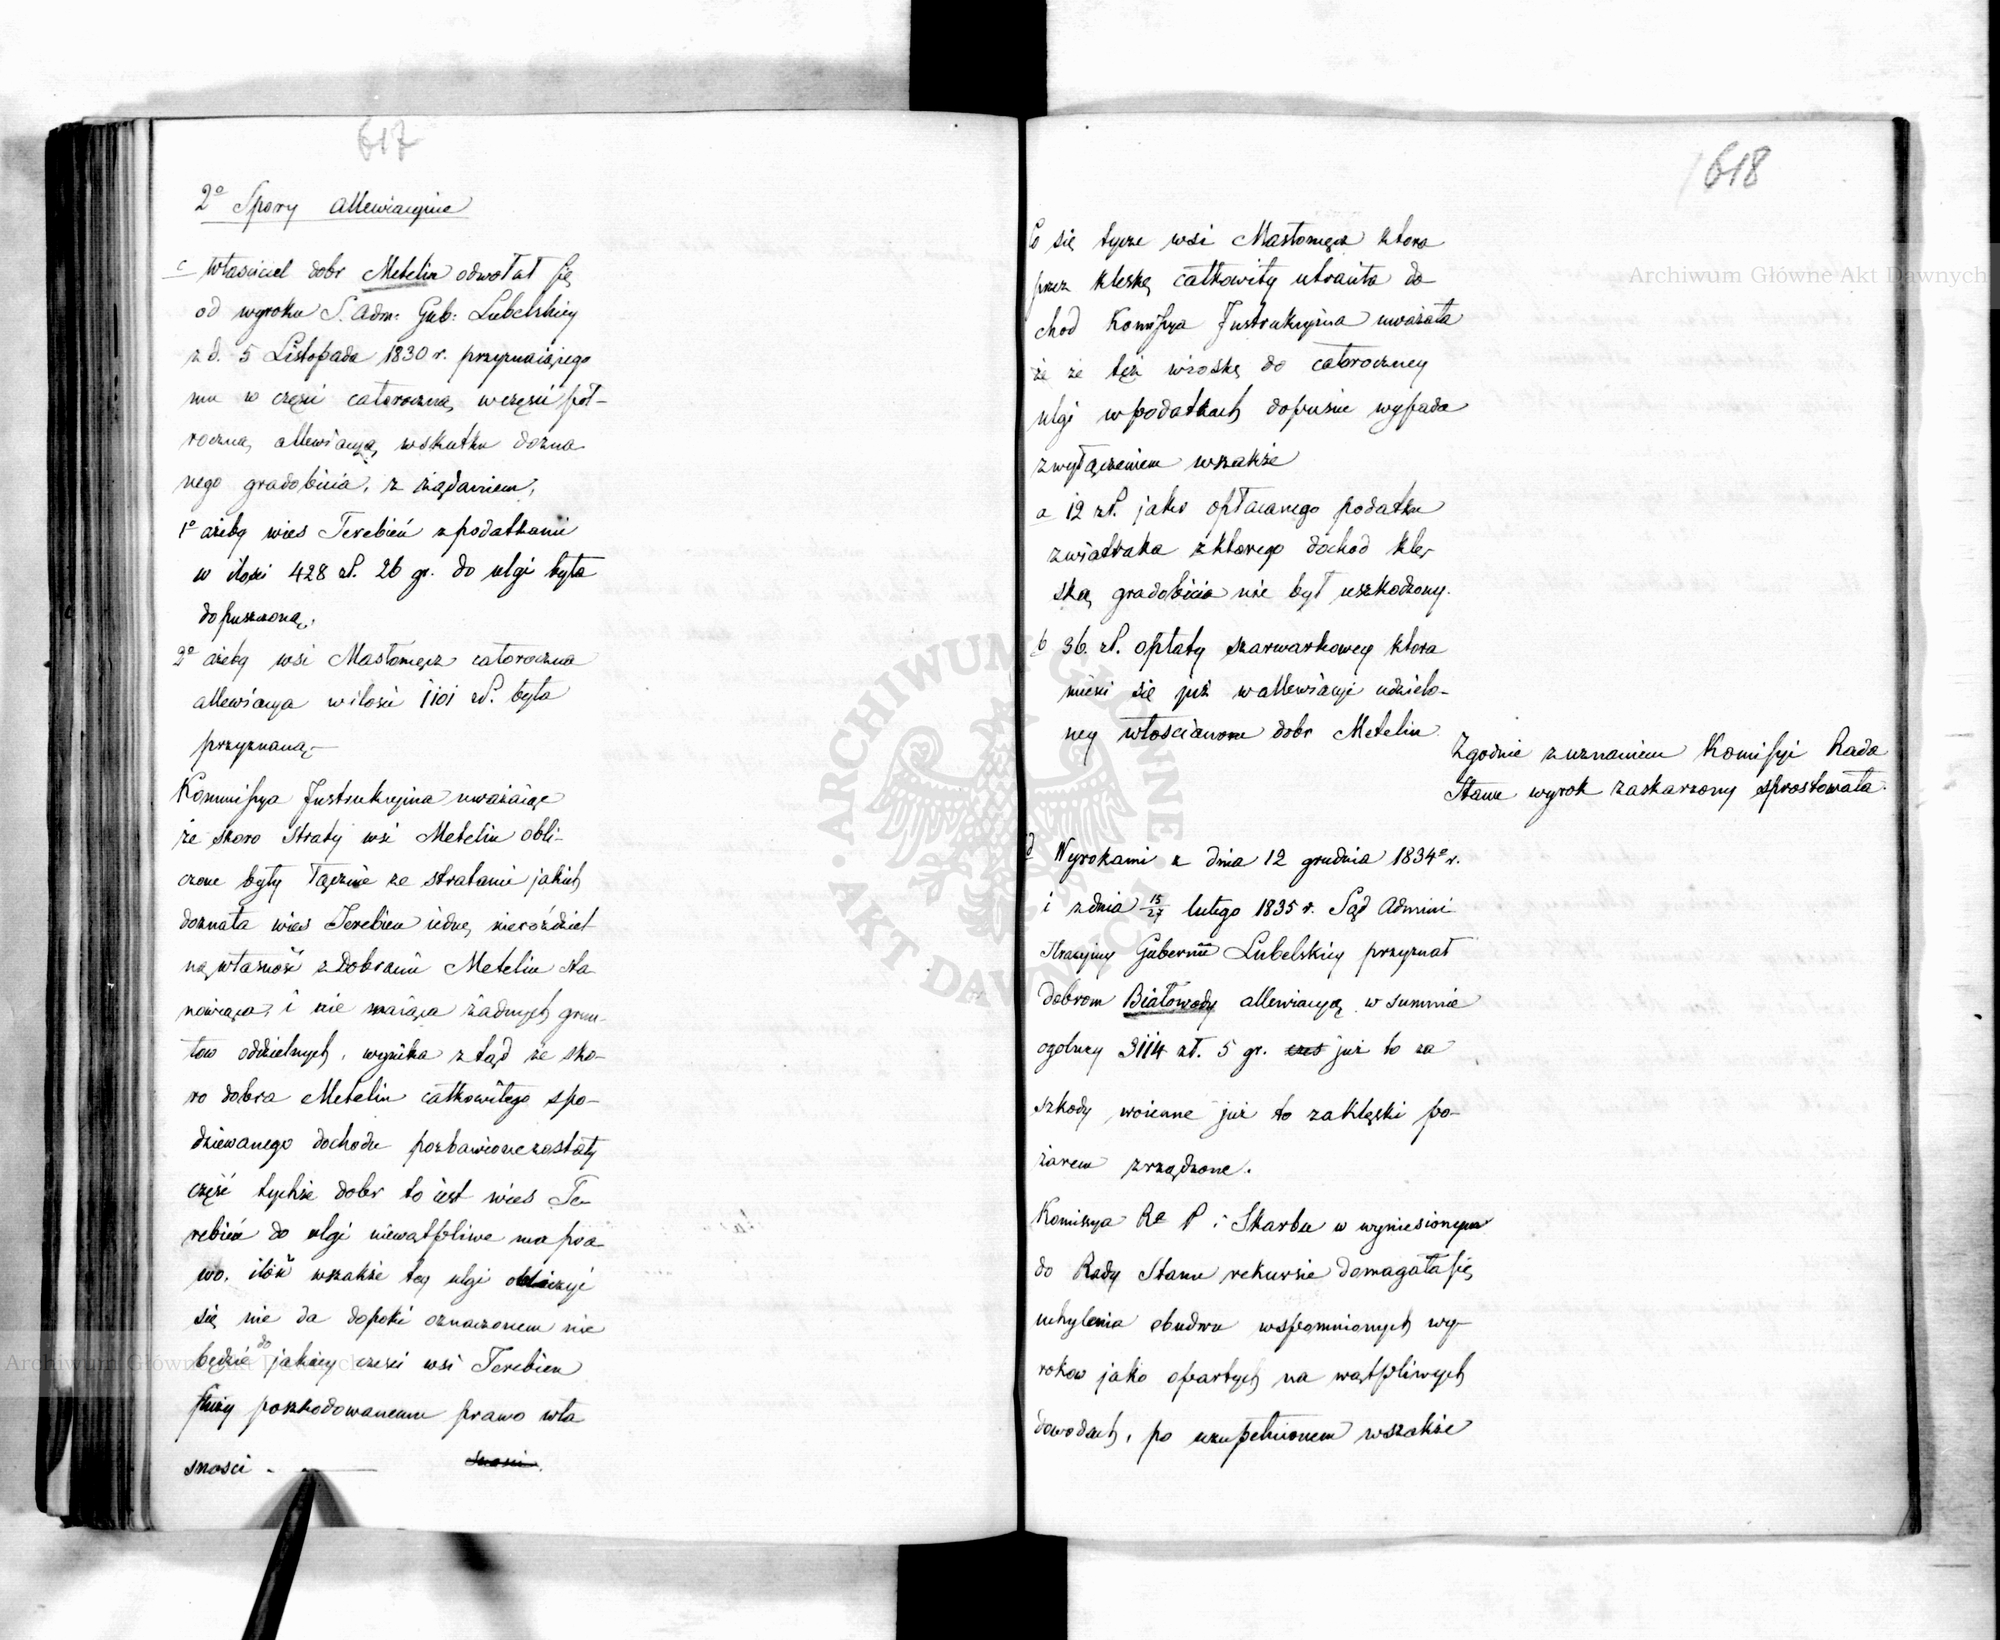 617
2o Spory allewiacyine
c Własciciel dobr Metelin odwołał się
od wyroku S. Adm: Gub: Lubelskiey
z d. 5 Listopada 1830 r. przyznaiącego
mu w części całoroczną, w części puł-
roczną, allewiacyą, wskutku dozna
nego gradobicia, z żądaniem,
1o ażeby wies Terebień z podatkami
w ilosci 428 zł. 26 gr. do ulgi była
dopuszczoną,
2o ażeby wsi Masłomęcz całoroczna
allewiacya w ilosci 1101 zł. była
przyznaną.—
Kommissya Instrukcyina uważaiąc
że skoro straty wsi Metelin obli-
czone były łącznie ze stratami jakich
doznała wies Terebien iedną nierozdziel
ną własność z Dobrami Metelin sta
nowiąca, i nie maiąca żadnych grun-
tow oddzielnych, wynika ztąd że sko-
ro dobra Metelin całkowitego spo-
dziewanego dochodu pozbawione zostały
część tychże dobr to iest wies Te-
rebień do ulgi niewątpliwe ma pra-
wo, ilość wszakże tey ulgi obliczyć
się nie da dopoki oznaczonem nie
będzie do jakiey czesci wsi Terebien
służy poszkodowanemu prawo wła
snosci . —
618
Co się tycze wsi Masłomęcz ktora
przez klęskę całkowity utraciła do-
chod Kommissya Instrukcyina uważała
że że tęż wioskę do całoroczney
ulgi w podatkach dopuścic wypada
z wyłączeniem wszakże
a 12 zł. jako opłacanego podatku
z wiatraka z ktorego dochod klę-
ską gradobicia nie był uszkodzony.
b 36. zł. opłaty szarwarkowey ktora
mieści się już w allewiacyi udzielo-
ney włoscianom dobr Metelin
Zgodnie z uznaniem Komissyi Rada
Stanu wyrok zaskarżony sprostowała.
d Wyrokami z dnia 12 grudnia 1834o r.
i z dnia 15/27 lutego 1835 r. Sąd Admini
stracyiny Gubernii Lubelskiey przyznał
Dobrom Białowody allewiacyą w summie
ogolney 3114 zł. 5 gr. już to za
szkody woienne już to za klęski po-
żarem zrządzone.
Komisya Rz P i Skarbu w wyniesionym
do Rady Stanu rekursie domagała się,
uchylenia obudwu wspomnionych wy-
rokow jako opartych na wątpliwych
dowodach, po uzupełnionem wszakże
Archiwum Główne Akt Dawnych
ARCHIWUM GŁÓWNE AKT DAWNYCH